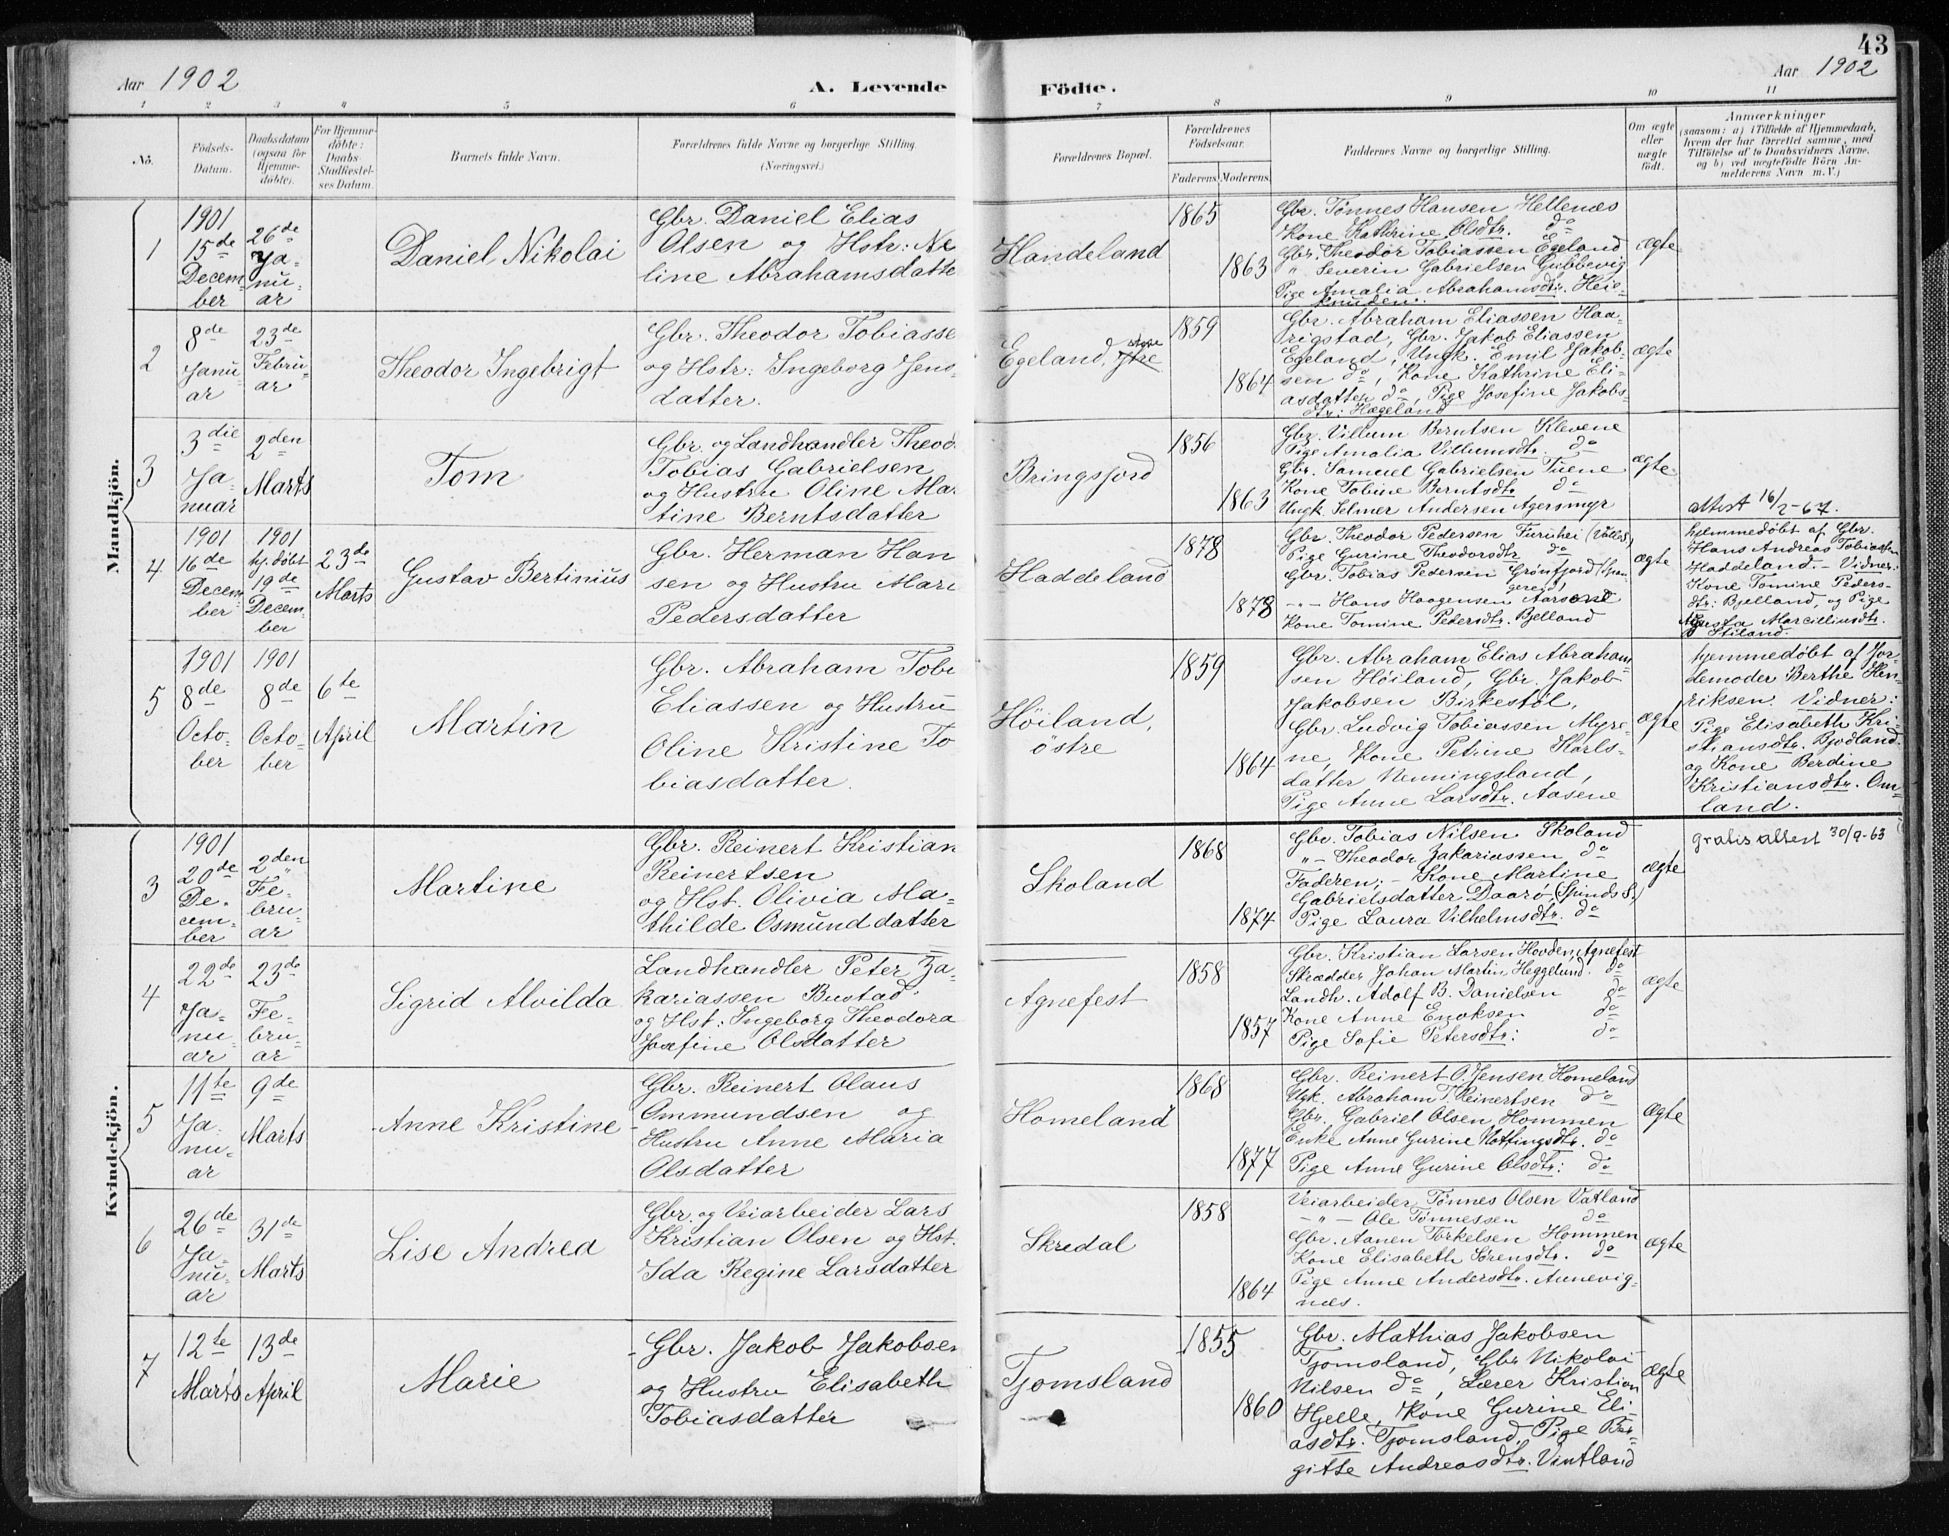 43
Aar 1902
A. Levende
Födte.
Aar 1902
1 2 3 4 5 6 7 8 9 10 11
No.
Födsels-
Datum.
Daabsdatum
(ogsaa for
Hjemme-
döbte).
For Hjemme-
döbte:
Daabs-
Stadfæstel-
ses Datum.
Barnets fulde Navn.
Forældrenes fulde Navne og borgerlige Stilling.
(Næringsvei.)
Forældrenes Bopæl.
Forældrenes
Födselsaar.
Faderens. Moderens.
Faddernes Navne og borgerlige Stilling.
Om ægte
eller
uægte
födt.
Anmærkninger
(saasom: a) i Tilfælde af Hjemmedaab,
hvem der har forrettet samme, med
Tilföielse af to Daabsvidners Navne,
og b) ved uegtefödte Börn An-
melderens Navn m. V.)
Mandkjön.
1
1901
15de
Decem-
ber
26de
Ja-
nu-
ar
Daniel Nikolai
Gbr. Daniel Elias
Olsen og Hstr: Ne
line Abrahamsdatte
Handeland
1865
1863
Gbr. Tønnes Hansen Hellenæs
Kone Kathrine Olsdtr. do
Gbr. Theodor Tobiassen Egeland
" Severin Gabrielsen Gubbevig
Pige Amalia Abrahamsdtr. Heie-
knuden.
ægte
2
8de
Janu-
ar
23de
Febru-
ar
Theodor Ingebrigt
Gbr. Theodor Tobiasse
og Hstr: Ingeborg Jens-
datter.
Egeland,
1859
1864
Gbr. Abraham Eliassen Haa-
rigstad, Gbr. Jakob Eliassen
Egeland, Ungk. Emil Jakob-
sen do, Kone Kathrine Eli-
asdatter do, Pige Josefine Jakobs-
dtr: Hægeland
ægte
3
3die
Ja-
nuar
2den
Marts
Tom
Gbr. og Landhandler Theod
Tobias Gabrielsen
og Hustru Oline Mar
tine Berntsdatter
Bringsjord
1856
1863
Gbr. Villum Berntsen Klevene
Pige Amalia Villumsdtr. do
Gbr. Samuel Gabrielsen Tuene
Kone Tobine Berntsdtr do
Ungk. Selmer Andersen Agersmyr
ægte
attest 16/2-67.
4
1901
16de
Decem
ber
1901
hj. døbt
19de
Decem-
ber
23de
Marts
Gustav Bertinius
Gbr. Herman Han
sen og Hustru Mari
Pedersdatter
Haddeland
1878
1878
Gbr. Theodor Pedersen Furuhei
Pige Gurine Theodorsdtr do
Gbr. Tobias Pedersen Grønfjord
-"- Hans Haagensen Aarsend
Kone Tomine Pedersdtr. Bjelland
ægte
hjemmedøbt af Gbr.
Hans Andreas Tobiassen
Haddeland. - Vidner:
Kone Tomine Peders-
dtr: Bjelland, og Pige
Agusta Marcelliusdtr.
Stiland.
5
1901
8de
Octo-
ber
1901
8de
Octo-
ber
6te
April
Martin
Gbr. Abraham Tobi
Eliassen og Hustru
Oline Kristine To
biasdatter.
Höiland,
östre
1859
1864
Gbr. Abraham Elias Abraham-
sen Höiland, Gbr. Jakob
Jakobsen Birkestöl,
Gbr. Ludvig Tobiassen Myre-
ne, Kone Petrine Karls-
datter Venningsland,
Pige Anne Larsdtr. Aasene
ægte
hjemmedøbt af Jor-
demoder Berthe Hen-
riksen. Vidner:
Pige Elisabeth Kri-
stiansdtr. Bjodland.
og Kone Berdine
Kristiansdtr. Om-
land.
Kvindekjön.
3
1901
20de
De-
cem-
ber
2den
Fe-
bru-
ar
Martine
Gbr. Reinert Kristian
Reinertsen
og Hst. Olivia Ma-
thilde Osmunddatter
Skoland
1868
1874
Gbr. Tobias Nilsen Skoland
"- Theodor Zakariassen do
Faderen; - Kone Martine
Gabrielsdatter Daarö, (Spinds S.)
Pige Laura Vilhelmsdtr. do
ægte
gratis attest 30/9-63
4
22de
Ja-
nu-
ar
23de
Fe-
bru-
ar
Sigrid Alvilda
Landhandler Peter Za-
kariassen Bustad.
og Hst: Ingeborg Theodora
Josefine Olsdatter
Agnefest
1858
1857
Gbr. Kristian Larsen Hovden, Agnefest
Skrædder Johan Martin Heggelund. do
Landh. Adolf B. Danielsen do
Kone Anne Enoksen do
Pige Sofie Petersdtr: do
ægte
5
11te
Ja-
nu-
ar
9de
Marts
Anne Kristine
Gbr. Reinert Olaus
Ommundsen og
Hustru Anne Maria
Olsdatter
Homeland
1868
1877
Gbr. Reinert O. Jensen Homeland
Ugk. Abraham T. Reinertsen do
Gbr. Gabriel Olsen Hommen
Enke Anne Gurine Nottingsdtr. do
Pige Anne Gurine Olsdtr: do
Ægte
6
26de
Ja-
nu-
ar
31de
Marts
Lise Andrea
Gbr. og Veiarbeider Lars
Kristian Olsen og Hst.
Ida Regine Larsdatter
Skredal
1858
1864
Veiarbeider Tønnes Olsen Vatland
-"- Ole Tønnessen do
Gbr. Aanen Torkelsen Hommen
Kone Elisabeth Sörensdtr. do
Pige Anne Andersdtr. Annevig-
næs.
ægte
7
12te
Marts
13de
April
Marie
Gbr. Jakob Jakobsen
og Hustru Elisabeth
Tobiasdatter
Tjomsland
1855
1860
Gbr. Mathias Jakobsen
Tjomsland, Gbr Nikolai
Nilsen do, Lærer Kristian
Hjelle, Kone Gurine Eli-
asdtr. Tjomsland, Pige Ber-
gitte Andreasdtr. Vintland
ægte